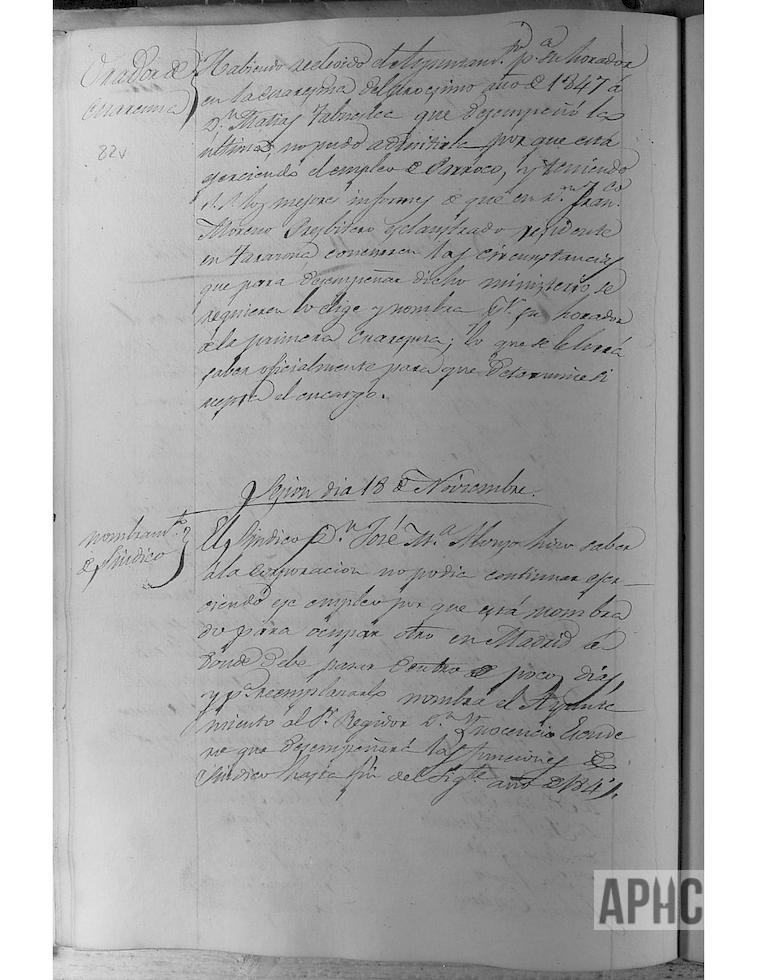 Orador de
Cuaresma
82v
Habiendo elegido el Ayuntam.to p.a su horador
en la cuaresma del procsimo año de 1847 á
D.n Matias que desempeñó la
ultima, no pudo admitirla por que está
ejerciendo el empleo de Parroco, y teniendo
los mejores informes de que en D.n Fran.co
Moreno Presbitero esclaustrado residente
en Tarazona concurren las circunstancias
que para desempeñar dicho ministerio se
requieren lo elige y nombra por su horador
de la primera cuaresma; lo que se le hará
saber oficialmente para que determine si
acepta el encargo.
Sesion dia 18 de Noviembre.
nombram.to
de Sindico
El Sindico D.n José M.a Monzo hizo saber
á la corporacion no podia continuar ejer-
ciendo ese empleo por que está nombra
do para ocupar otro en Madrid á
donde debe pasar dentro de pocos dias
y p.a reemplazarlo nombra el Ayunta
miento al S.r Regidor D.n Ynocencio
que desempeñará las funciones de
Sindico hasta fin del sig.te año de 1847.
APHC